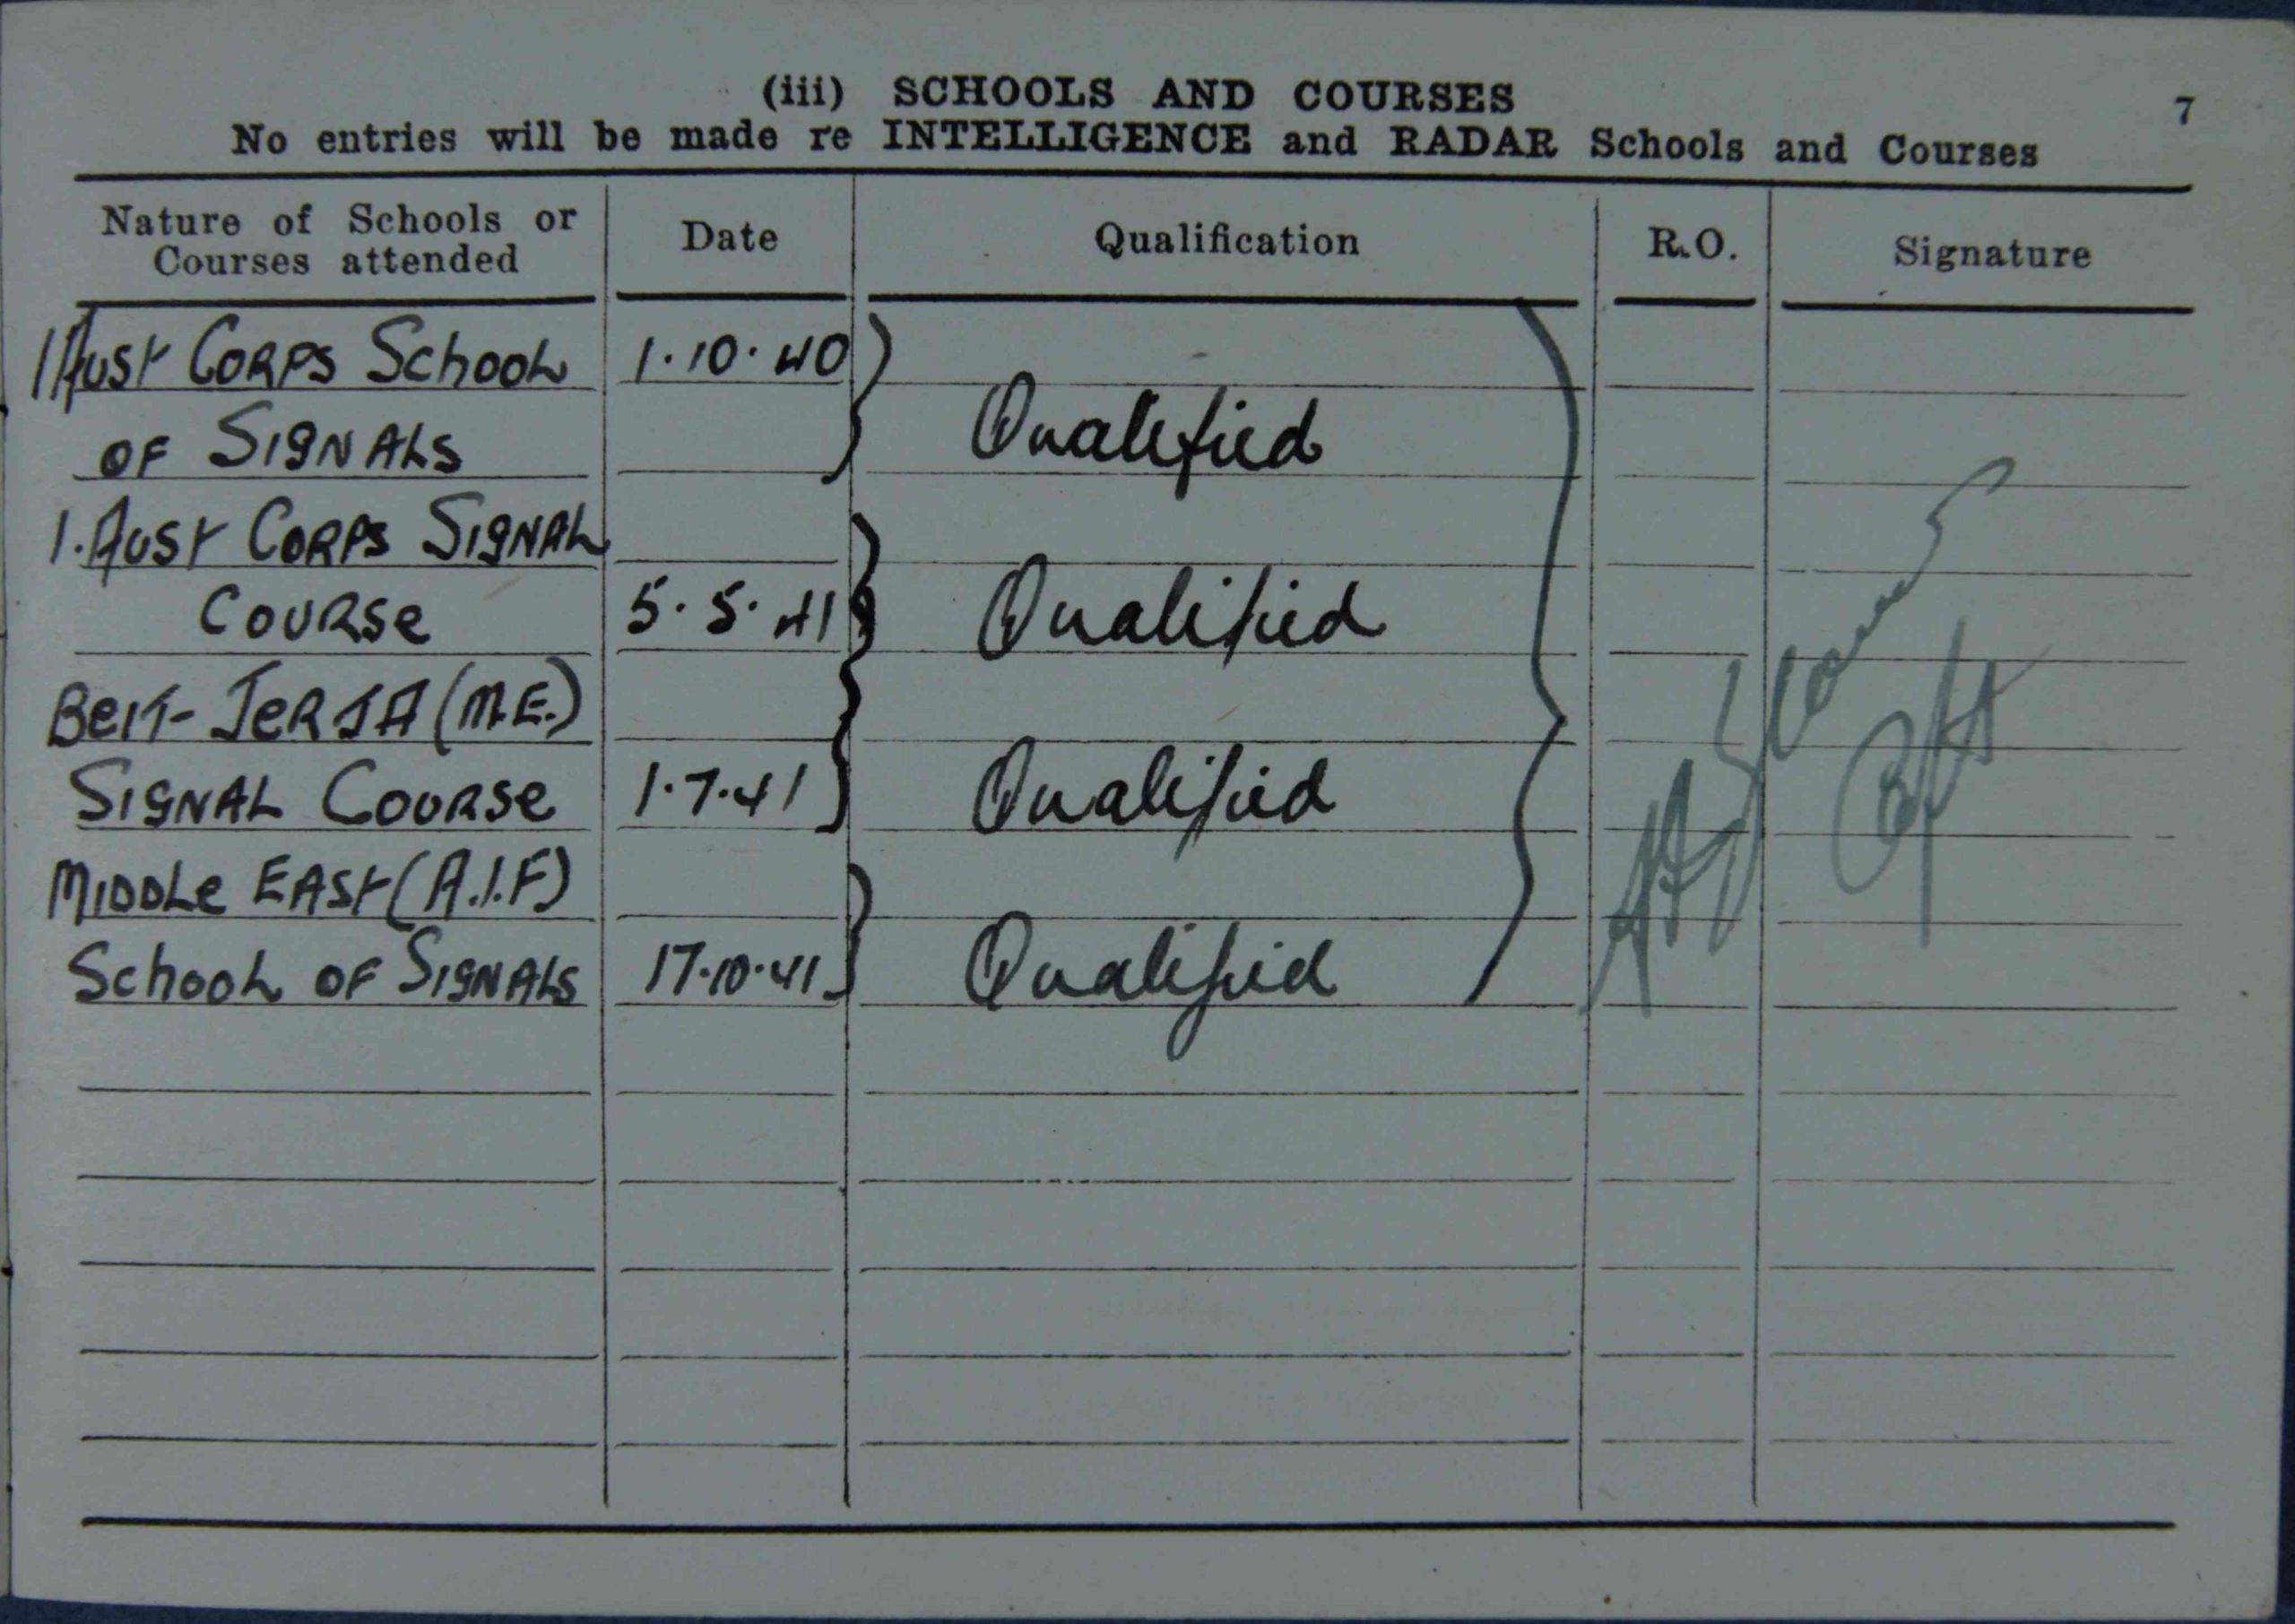 (iii) SCHOOLS AND COURSES
7
No entries will be made re INTELLIGENCE and RADAR Schools and Courses
Nature of Schools or Courses attended
Date
Qualification
R.O.
Signature
1 Aust Corps School 1.10.40
of Signals Qualified
1. Aust Corps Signal
Course 5.5.41 Qualified
Beit-Jerja (M.E.)
Signal Course 1.7.41 Qualified
Middle East (A.I.F)
School of Signals 17.10.41 Qualified
Capt